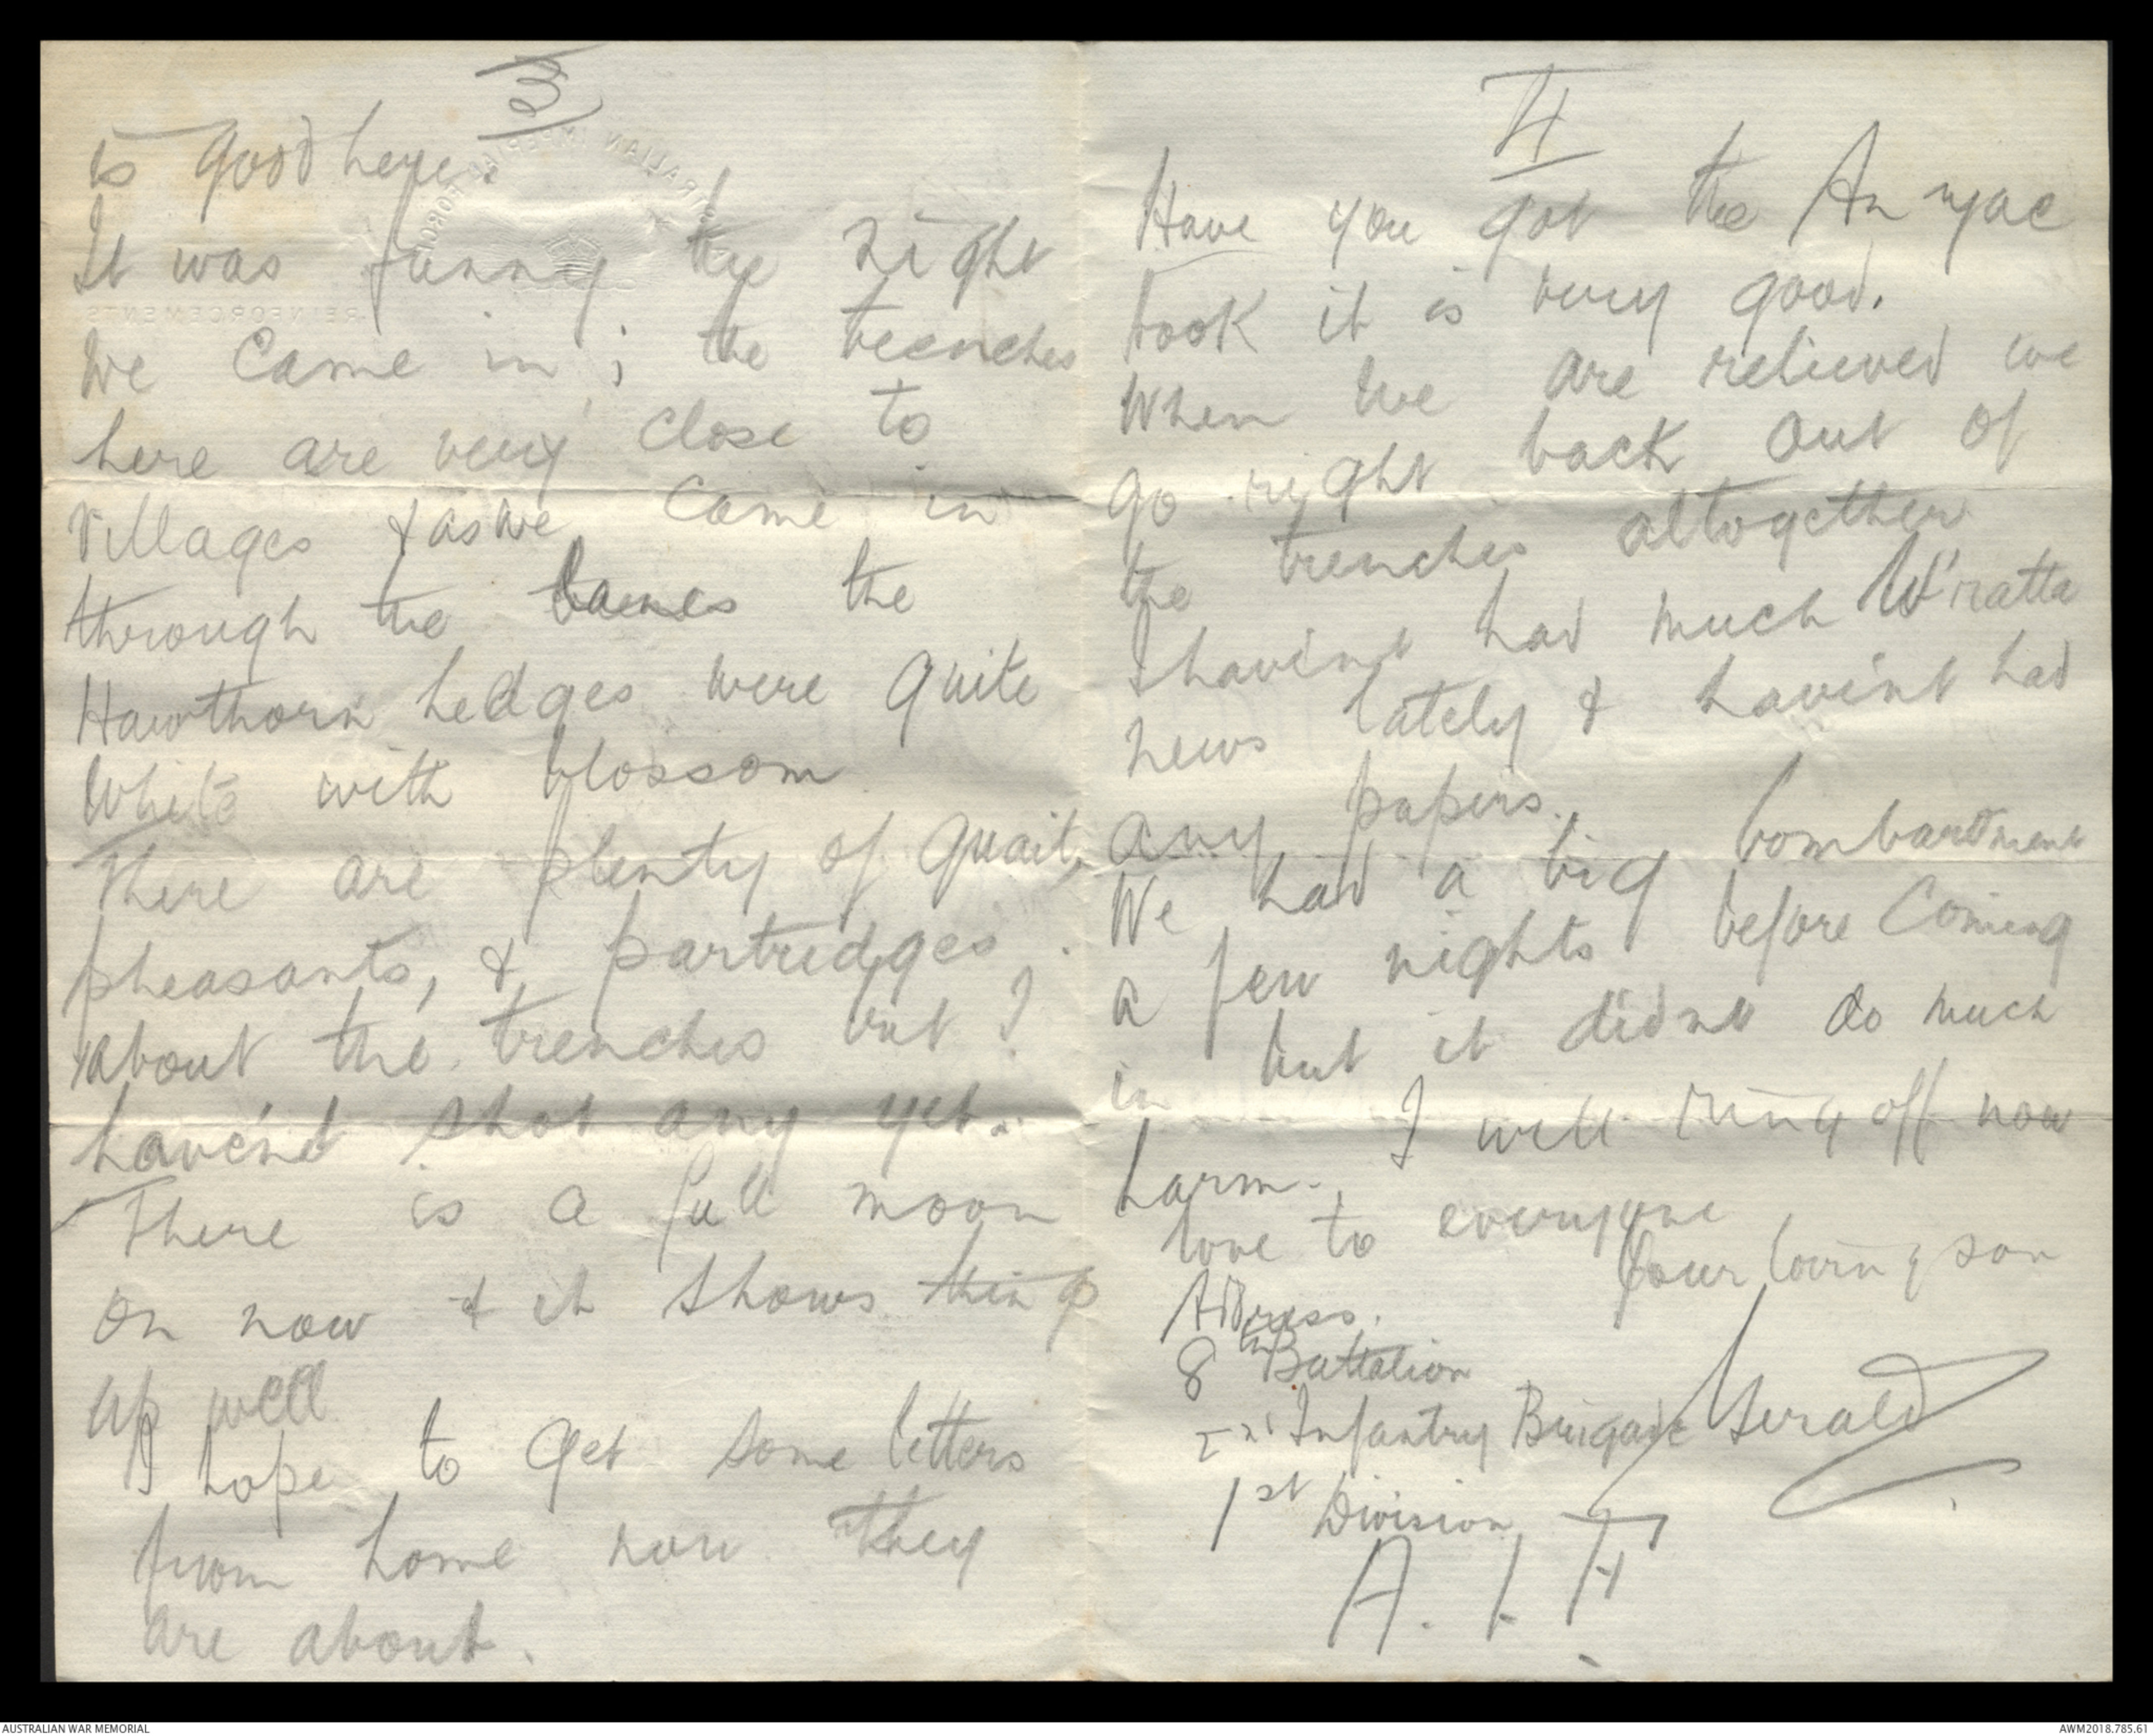 3
is good here.
It was funny the night
We came in ; the trenches
here are very close to
villages & as we came in
through the lanes the
Hawthorn hedges were quite
white with blossom
There are plenty of quail,
pheasants, & partridges
about the trenches but I
haven't shot any yet.
There is a full moon
on now & it shows things
up well
I hope to get some letters
from home now they
are about.
4
Have you got the Anzac
book it is very good.
When we are relieved we
go right back out of
the trenches altogether
I havint had much W'ratta
news lately & havint had
any papers.
We had a big bombardment
a few nights before coming
in but it didnt do much
harm. I will ring off now
love to everyone
Your loving son
Gerald
Address.
8th Battalion
2nd Infantry Brigade
1st Division
A. I F
AUSTRALIAN IMPERIAL FORCE
REINFORCEMENTS
AUSTRALIAN WAR MEMORIAL
AWM2018.785.61